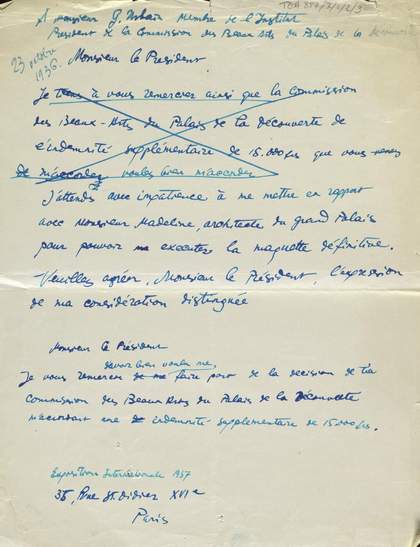 A monsieur G. Urbain Membre de l'Institut
President de la Commission des Beaux Arts du Palais de la
23 octobre
1936.
Monsieur le President
Je tiens à vous remercier ainsi que la Commission
des Beaux-Arts du Palais de la découverte de
l'indemnité supplémentaire de 15.000 frs que vous
de m'accorder voulez bien m'accorder
J'attends avec impatience à me mettre en rapport
avec Monsieur Madeline, architecte du grand Palais
pour pouvoir executer la maquette définitive.
Veuillez agréer, Monsieur le Président, l'expression
de ma considération distinguée
Monsieur le Président
bien voulu me,
Je vous remercie de me faire part de la decision de
Commission des Beaux Arts du Palais de la Découverte
m'accordant une indemnité supplementaire de 15000 frs.
Exposition Internationale 1937
35, Rue St. Didier XVIe
Paris